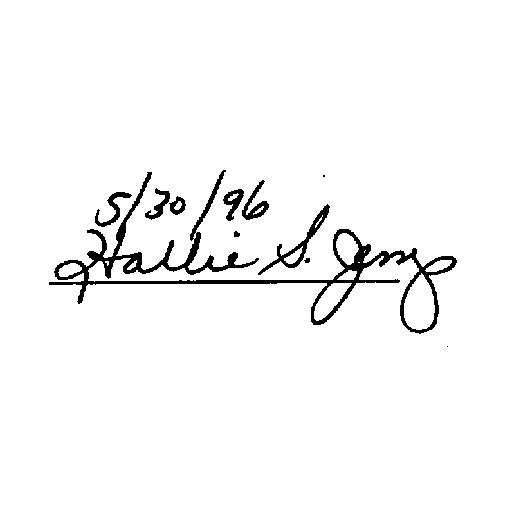 5/30/96
Hallie S. Jenny